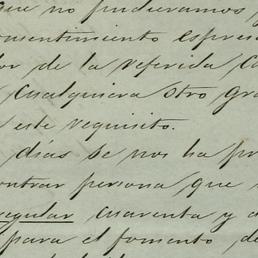 que no pudieramos
onsentimiento espres
or de la referida Ca
cualquiera otro gra
este requisito.
días se nos ha pr
ontrar persona que
regular cuarenta y
para el fomento de